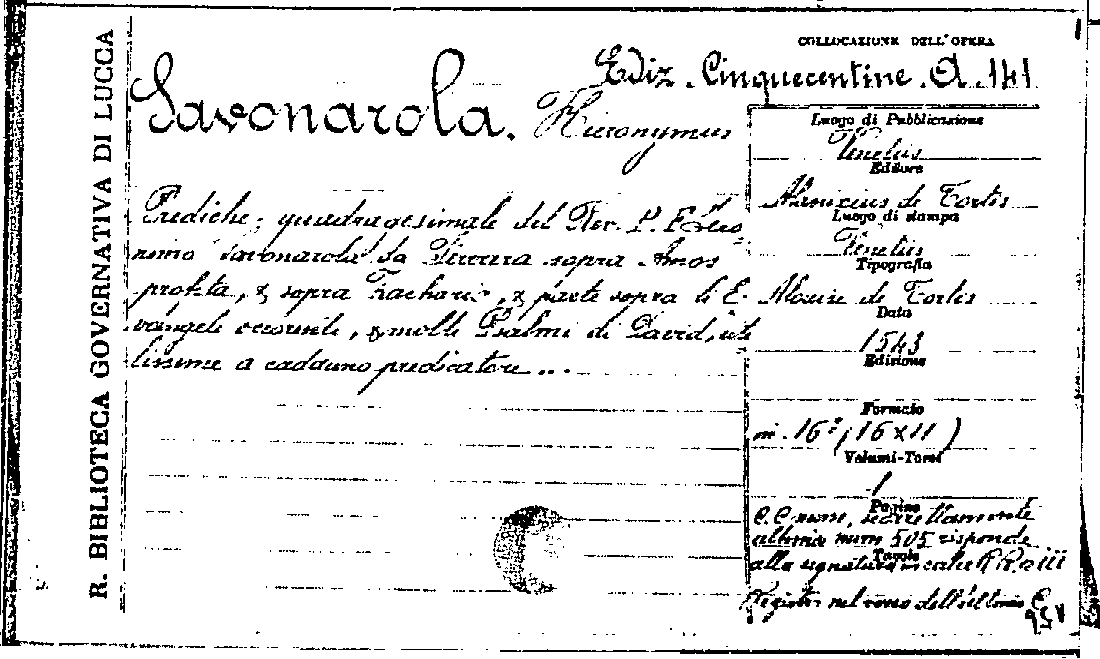 R. BIBLIOTECA GOVERNATIVA DI LUCCA
COLLOCAZIONE DELL'OPERA
Ediz. Cinquecentine. A. 141
Savonarola. Hieronymus
Prediche, quadragesimale del Rev. P. F. Iero
nimo Savonarola da Ferrara sopra Amos
propheta, & sopra Zacharia, & parte sopra li E-
vangeli occorente, & molti Psalmi di David, uti
lissime a cadauno predicatore ...
Luogo di Pubblicazione
Venetiis
Editore
Alouisius de Tortis
Luogo di stampa
Venetiis
Tipografia
Aloisie de Tortis
Data
1543
Edizione
Formato
in. 16° (16x11)
Volumi-Tomi
1
Pagine
C. C. num, scorrettamente
ultima num 505 risponde
Tavole
alla segnatura in calce RR. a iiii
Registro nel verso dell'ultima C.